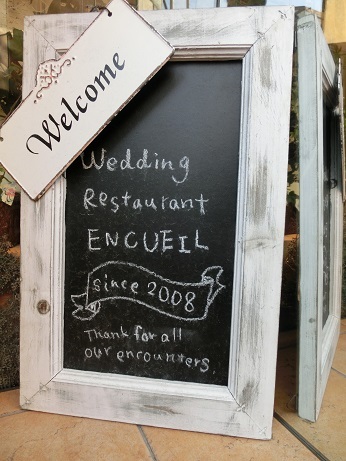 Welcome
Wedding
Restaurant
ENCUEIL
since 2008
Thank for all
our encounters.